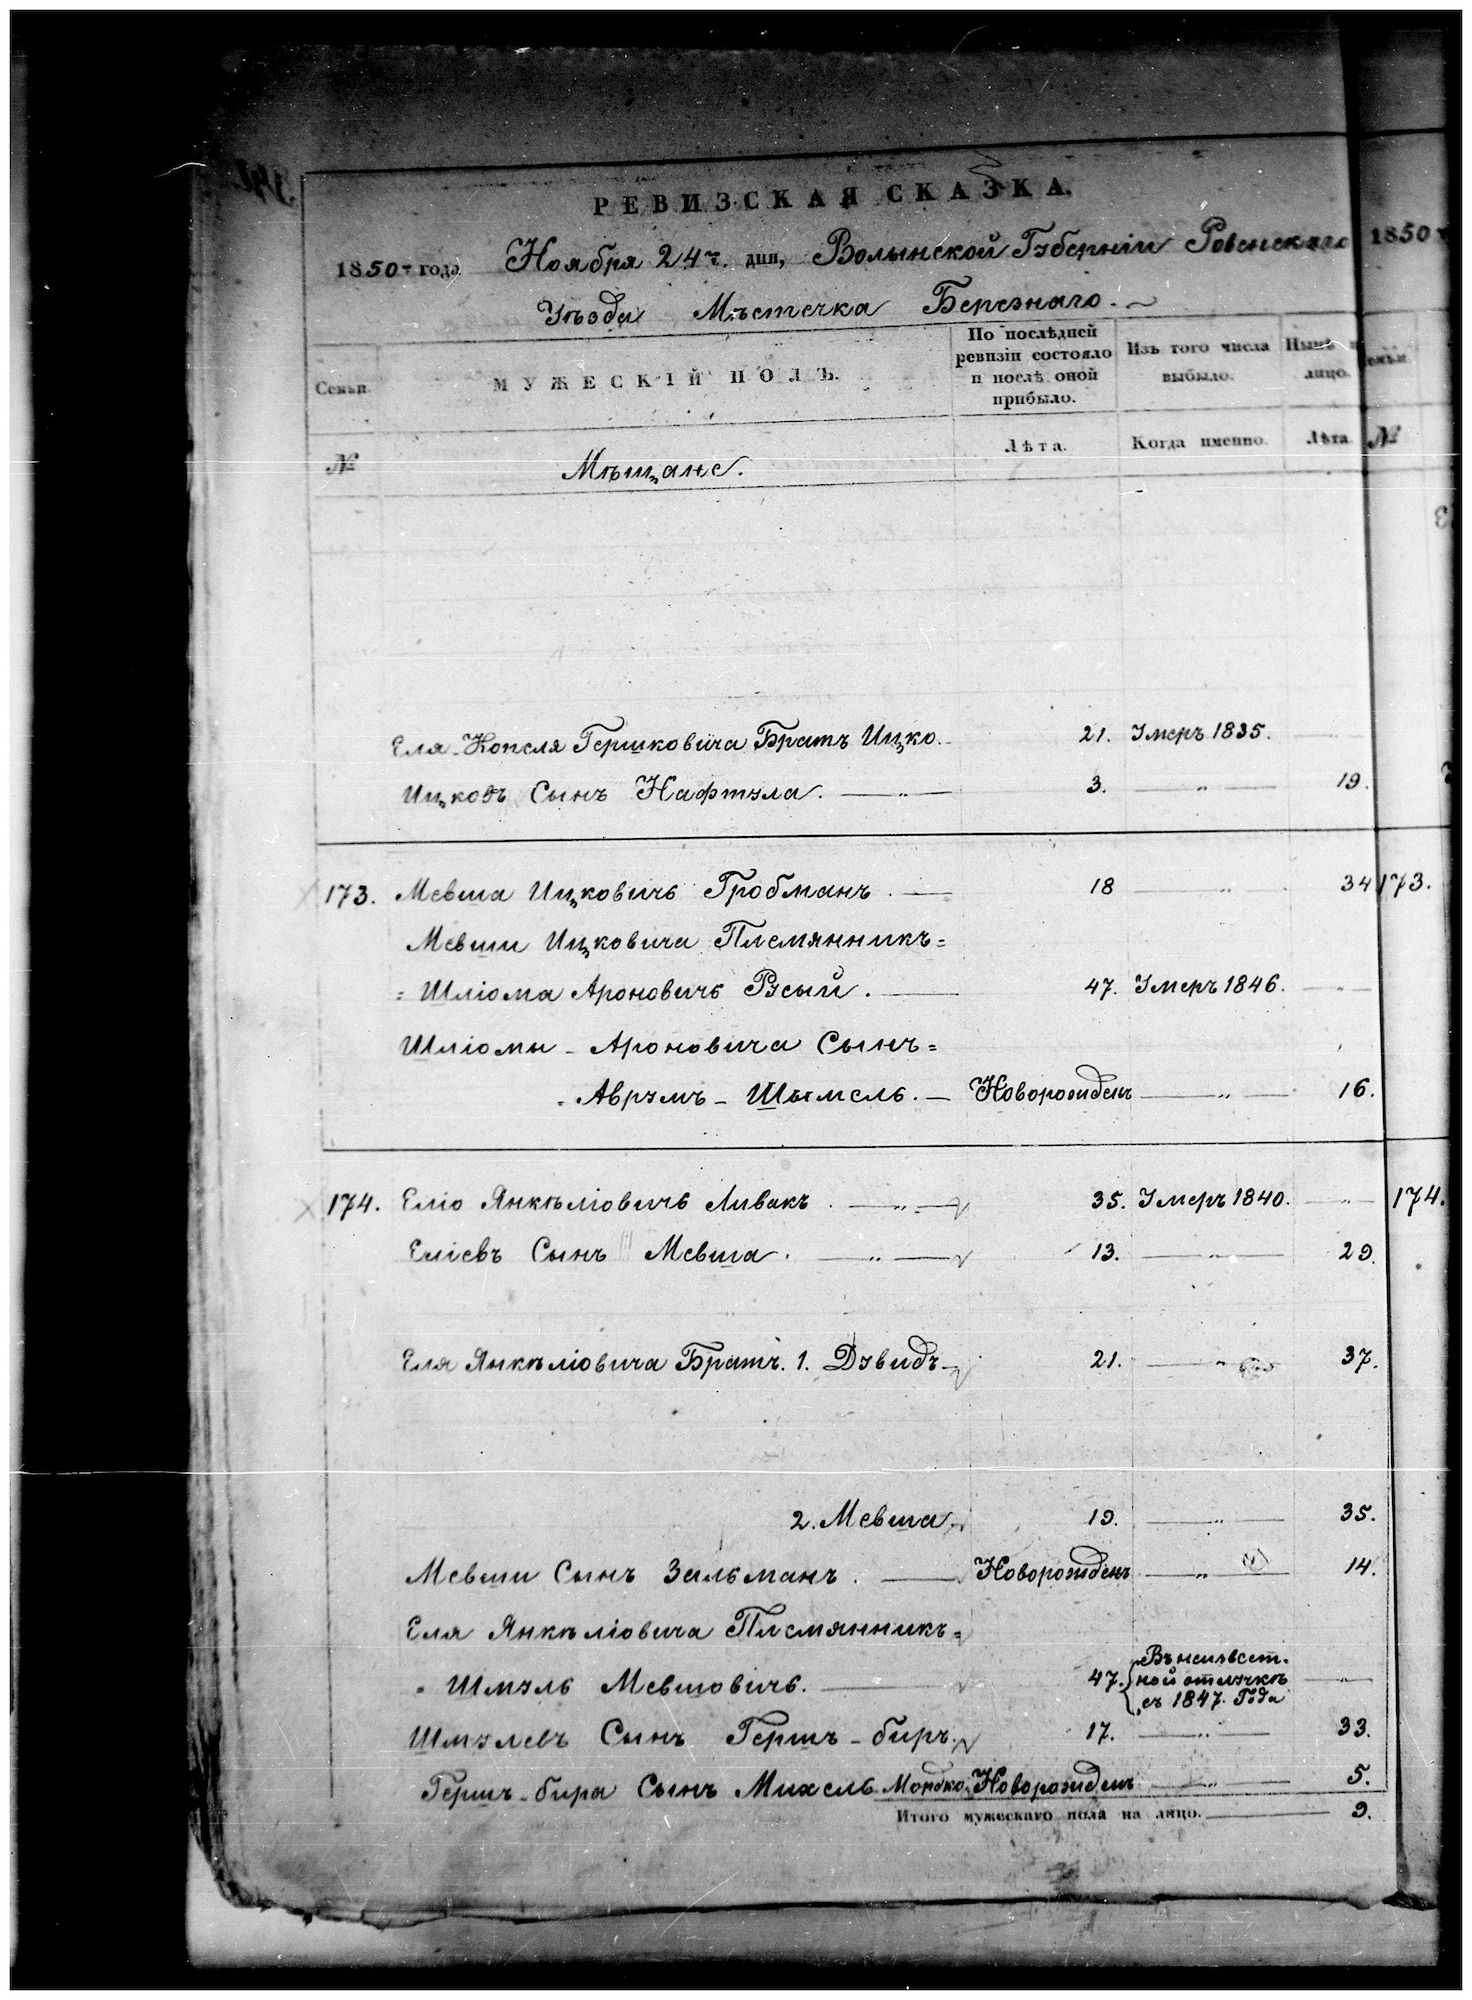 РЕВИЗСКАЯ СКАЗКА.
1850 года Ноября 24 дня, Волынской Губерніи Ровенскаго
Уѣзда Мѣстечка Березнаго.
1850
Семьи. МУЖЕСКІЙ ПОЛЪ. По послѣдней ревизіи состояло и послѣ оной прибыло. Изъ того числа выбыло. Нынѣ лицо.
№ Лѣта. Когда именно. Лѣта №
Мѣщане.
Еля-Копеля Гершковича Братъ Ицко. 21. Умеръ 1835.
Ицковъ Сынъ Нафтула. — „ — 3. „ — 19.
173. Мевша Ицковичъ Гробманъ. — 18 — „ 34 173.
Мевши Ицковича Племянникъ=
= Шліома Ароновичъ Рѵсый. — 47. Умеръ 1846. — „ —
Шліомы - Ароновича Сынъ=
= Аврумъ - Шымель. — Новорожденъ — „ — 16.
174. Еліо Янкѣліовичъ Ливакъ. — „ — 35. Умеръ 1840. — „ — 174.
Еліевъ Сынъ Мевша. — „ — 13. — „ — 29.
Еля Янкѣліовича Братъ. 1. Дувидъ 21. — „ 37.
2. Мевша. 19. — „ — 35.
Мевши Сынъ Зальманъ. — Новорожденъ — „ — 14.
Еля Янкѣліовича Племянникъ=
= Шмуль Мевшовичъ. — 47. Въ неизвѣст-
ной отлучкѣ
съ 1847. Года
Шмулевъ Сынъ Гершъ-биръ. 17. — „ — 33.
Гершъ-бира Сынъ Михель Мордко. Новорожденъ — „ — 5.
Итого мужескаго пола на лицо. — 9.